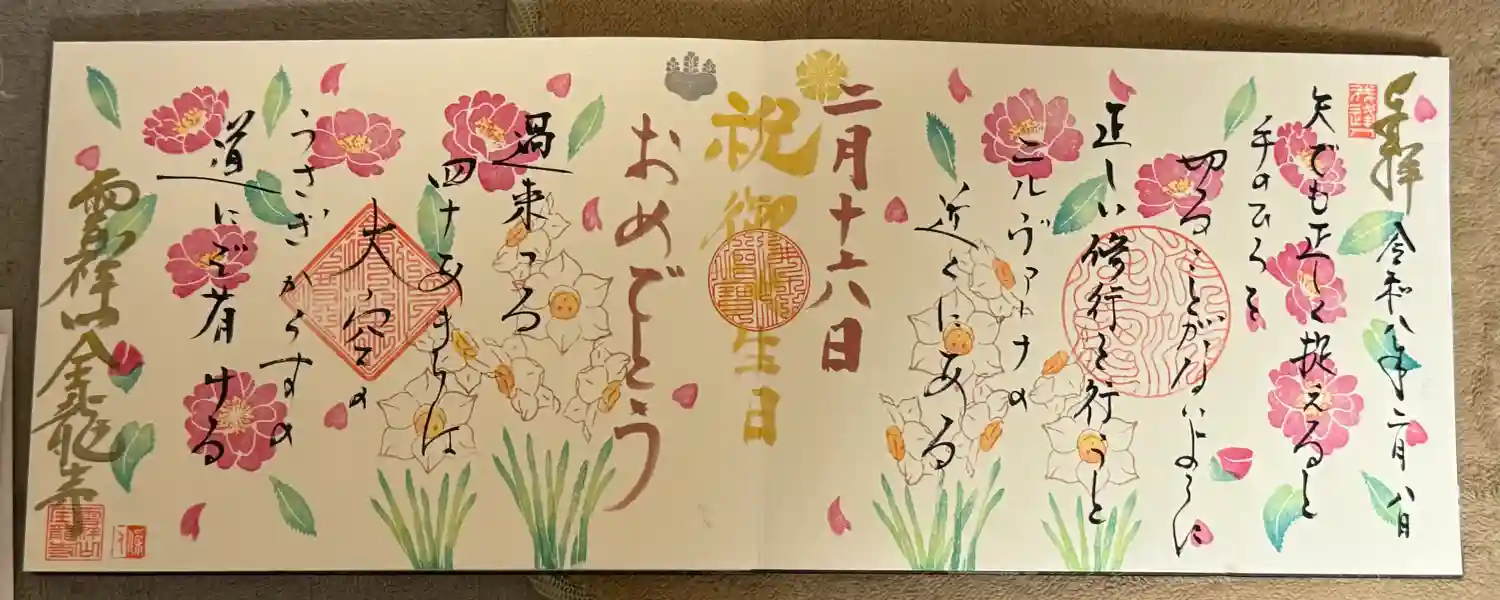 奉拝
令和八年二月八日
矢でも正しく捉えると
手のひらを
切ることがないように
正しい修行を行うと
ニルヴァーナの
近くにある
二月十六日
祝御生日
おめでとう
過来つる
四十あまりは
大空の
うさぎからすの
道にぞ有ける
雲祥山金龍寺